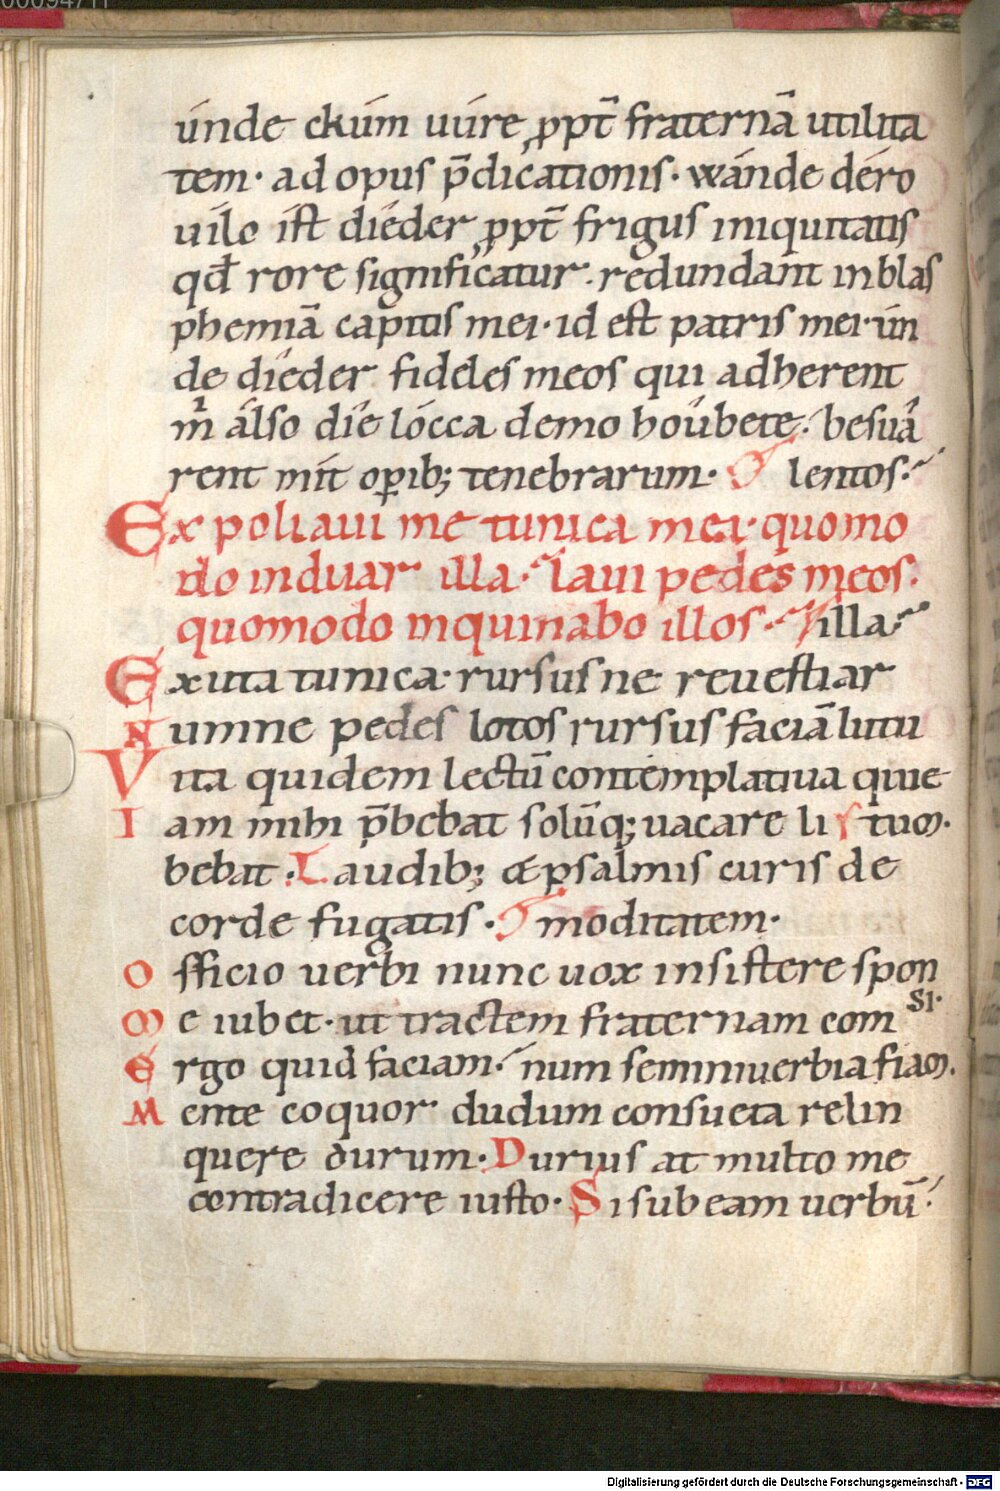 únde ckúm uúre ꝓpt̄ fraternā utilita
tem· ad opus p̄dicationis· wánde déro
uilo ist díeder ꝓpt̄ frigus iniquitatis
qđ rore significatur· redundant in blas
phemiā capitis mei· id est patris mei· ún
de díeder fideles meos qui adherent
m̄ álso díe lócca demo hóubete· besuā
rent mit oꝑib; tenebrarum· lentos·
Expoliaui me tunica mea· quomo
do induar illa· Laui pedes meos·
quomodo inquinabo illos· illa
Exuta tunica· rursus ne reuestiar
Numne pedes lotos rursus faciā lutu
Vita quidem lectū contemplatiua quie
Iam mihi p̄bebat solūq; uacare li tuos·
bebat· Laudib; & psalmis curis de
corde fugatis· moditatem·
Officio uerbi nunc uox insistere spon
si·
Me iubet· ut tractem fraternam com
Ergo quid faciam· num seminiuerbia fiam·
Mente coquor· dudum consueta relin
quere durum· Durius at multo me
contradicere iusto· Si subeam uerbū·
Digitalisierung gefördert durch die Deutsche Forschungsgemeinschaft - DFG